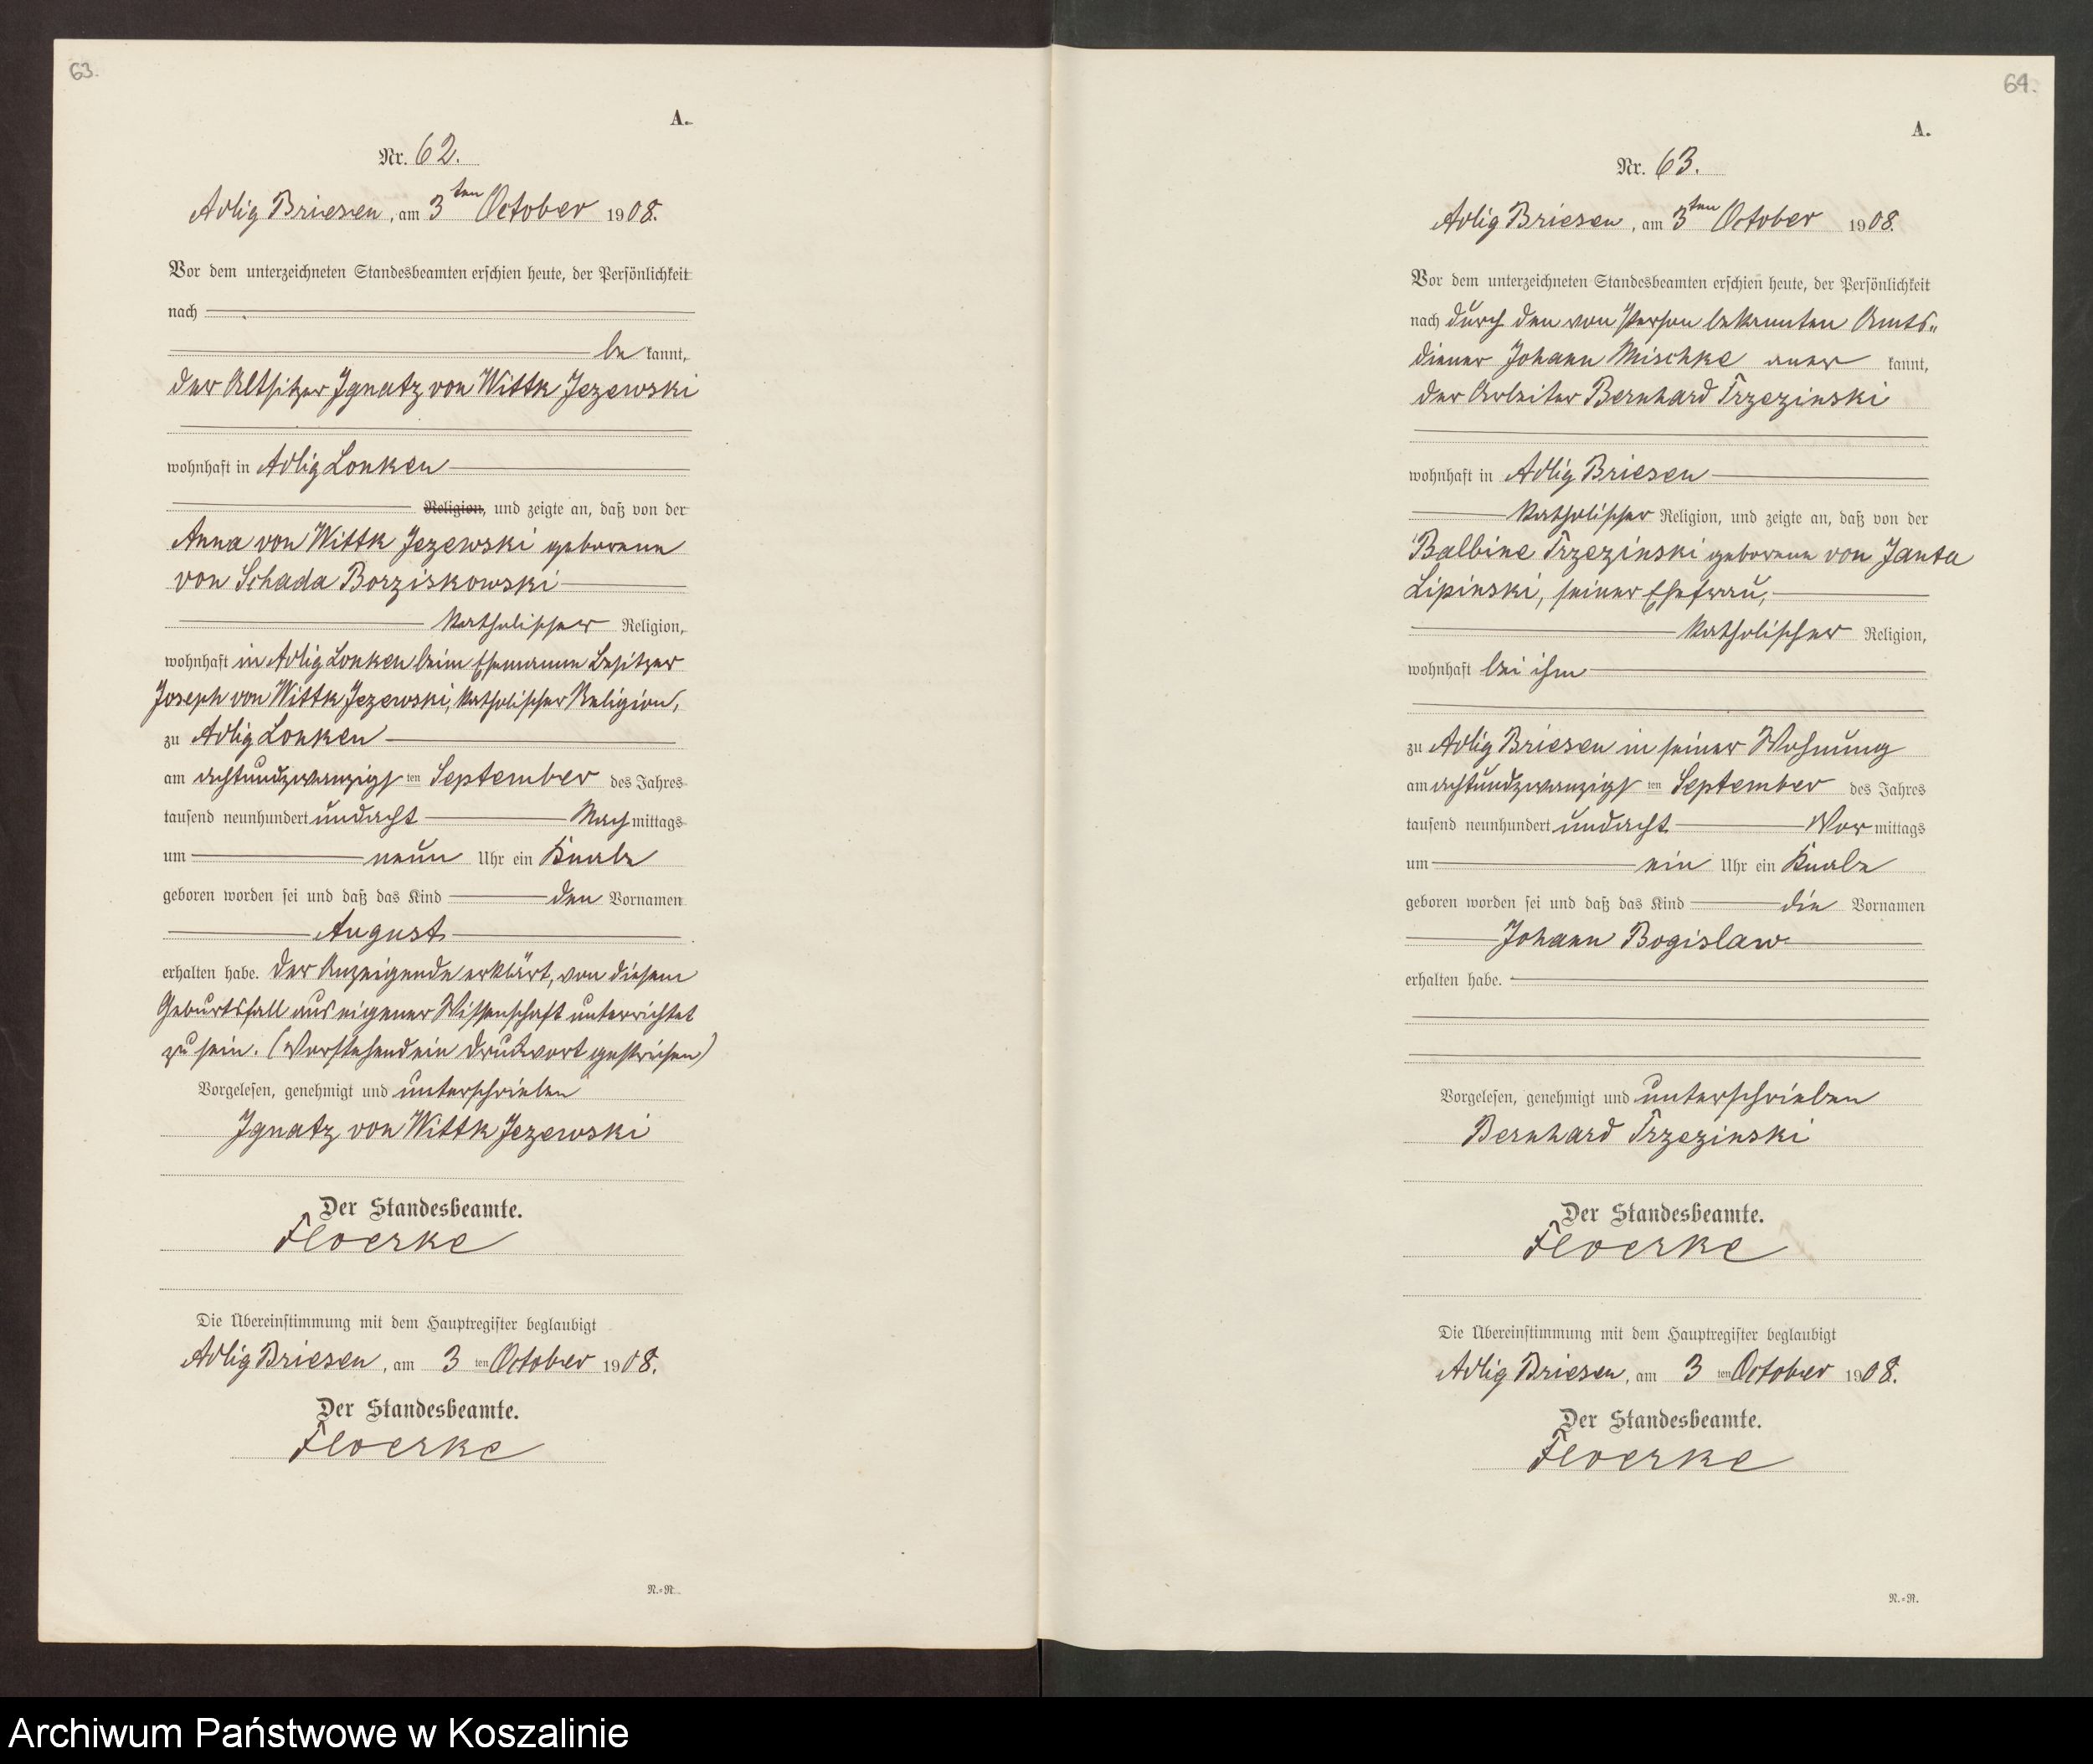 63.
A.
Nr. 62.
Adlig Briesen, am 3ten October 1908.
Vor dem unterzeichneten Standesbeamten erschien heute, der Persönlichkeit
nach
be kannt,
der Altsitzer Ignatz von Wittk Jezewski
wohnhaft in Adlig Lonken
Religion, und zeigte an, daß von der
Anna von Wittk Jezewski geborene
von Schada Borziskowski
katholischer Religion,
wohnhaft in Adlig Lonken beim Ehemanne Besitzer
Joseph von Wittk Jezewski, katholischer Religion,
zu Adlig Lonken
am achtundzwanzigsten September des Jahres
tausend neunhundert undacht Nachmittags
um neun Uhr ein Knabe
geboren worden sei und daß das Kind den Vornamen
August
erhalten habe. Der Anzeigende erklärt, von diesem
Geburtsfall aus eigener Wissenschaft unterrichtet
zu sein. (Vorstehend ein Druckwort gestrichen)
Vorgelesen, genehmigt und unterschrieben
Ignatz von Wittk Jezewski
Der Standesbeamte.
Floerke
Die Übereinstimmung mit dem Hauptregister beglaubigt
Adlig Briesen, am 3 ten October 1908.
Der Standesbeamte.
Floerke
N.=R.
64.
A.
Nr. 63.
Adlig Briesen, am 3ten October 1908.
Vor dem unterzeichneten Standesbeamten erschien heute, der Persönlichkeit
nach durch den von Person bekannten Amts„
diener Johann Mischke aner kannt,
der Arbeiter Bernhard Trzezinski
wohnhaft in Adlig Briesen
katholischer Religion, und zeigte an, daß von der
Balbine Trzezinski geborene von Janta
Lipinski, seiner Ehefrau,
katholischer Religion,
wohnhaft bei ihm
zu Adlig Briesen in seiner Wohnung
am achtundzwanzigsten September des Jahres
tausend neunhundert undacht Vormittags
um ein Uhr ein Knabe
geboren worden sei und daß das Kind die Vornamen
Johann Bogislaw
erhalten habe.
Vorgelesen, genehmigt und unterschrieben
Bernhard Trzezinski
Der Standesbeamte.
Floerke
Die Übereinstimmung mit dem Hauptregister beglaubigt
Adlig Briesen, am 3 ten October 1908.
Der Standesbeamte.
Floerke
N.=R.
Archiwum Państwowe w Koszalinie